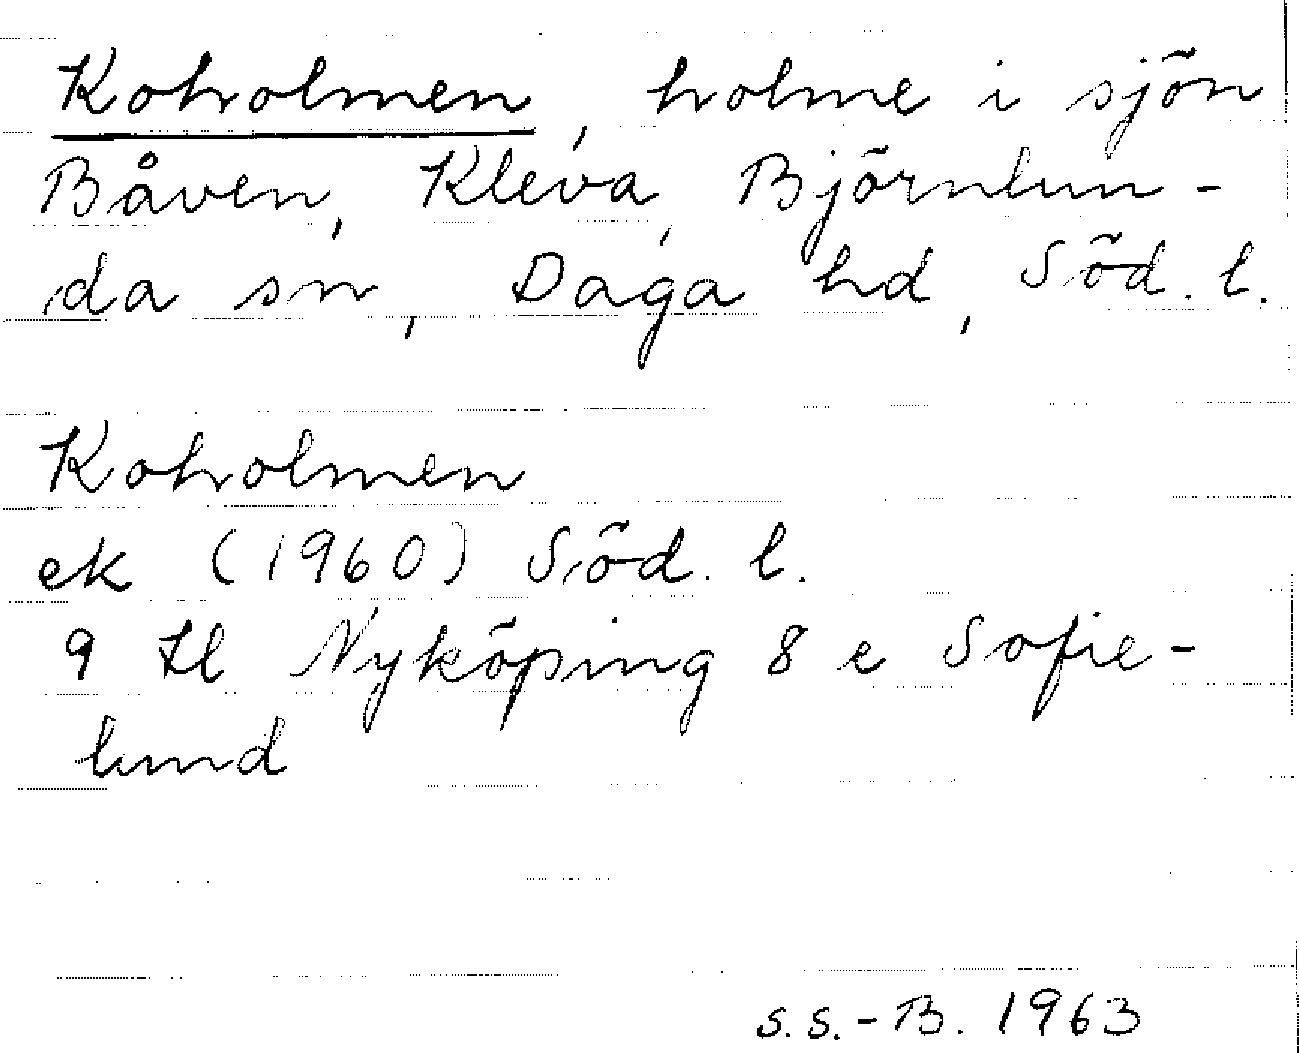 Koholmen, holme i sjön
Båven, Kleva, Björnlun-
da sn, Daga hd, Söd. l.
Koholmen
ek (1960) Söd. l.
9 H Nyköping 8 e Sofie-
lund
S.S.-B. 1963